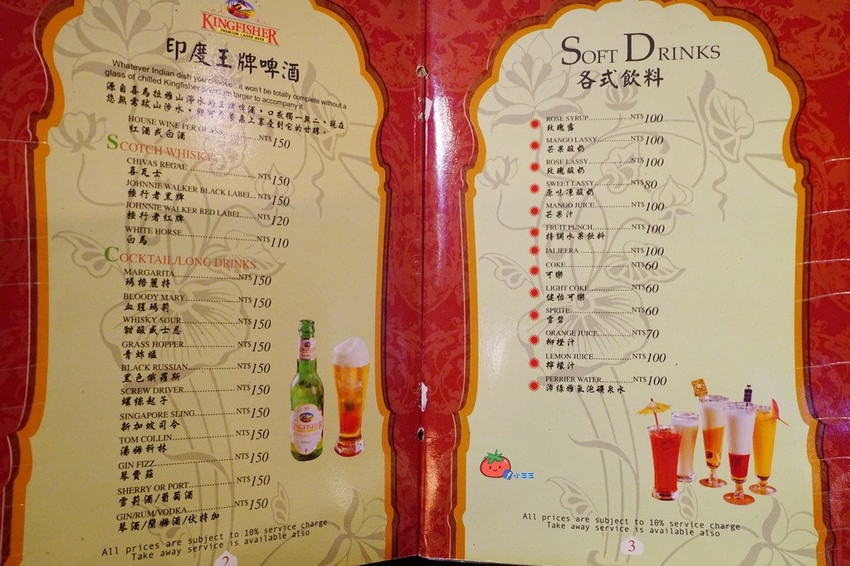 KINGFISHER
PREMIUM LAGER BEER
印度王牌啤酒
Whatever Indian dish you choose, it won't be totally complete without a
glass of chilled Kingfisher premium larger to accompany it.
源自喜馬拉雅山
HOUSE WINE PER GLASS NT$150
紅酒或白酒
SCOTCH WHISKY
CHIVAS REGAL NT$150
喜瓦士
JOHNNIE WALKER BLACK LABEL NT$150
極行者黑牌
JOHNNIE WALKER RED LABEL NT$120
極行者紅牌
WHITE HORSE NT$110
白馬
COCKTAIL/LONG DRINKS
MARGARITA NT$150
瑪格麗特
BLOODY MARY NT$150
血腥瑪莉
WHISKY SOUR NT$150
甜酸威士忌
GRASS HOPPER NT$150
青蚱蜢
BLACK RUSSIAN NT$150
黑色俄羅斯
SCREW DRIVER NT$150
螺絲起子
SINGAPORE SLING NT$150
新加坡司令
TOM COLLIN NT$150
湯姆科林
GIN FIZZ NT$150
琴費茲
SHERRY OR PORT NT$150
雪莉酒/葡萄酒
GIN/RUM/VODKA NT$150
琴酒/蘭姆酒/伏特加
All prices are subject to 10% service charge
Take away service is available also
2
SOFT DRINKS
各式飲料
ROSE SYRUP NT$100
玫瑰露
MANGO LASSY NT$100
芒果酸奶
ROSE LASSY NT$100
玫瑰酸奶
SWEET LASSY NT$80
原味凍酸奶
MANGO JUICE NT$100
芒果汁
FRUIT PUNCH NT$100
特調水果飲料
JALJEERA NT$100
COKE NT$60
可樂
LIGHT COKE NT$60
健怡可樂
SPRITE NT$60
雪碧
ORANGE JUICE NT$70
柳橙汁
LEMON JUICE NT$100
檸檬汁
PERRIER WATER NT$100
沛綠雅氣泡礦泉水
KINGFISHER
小豆豆
All prices are subject to 10% service charge
Take away service is available also
3